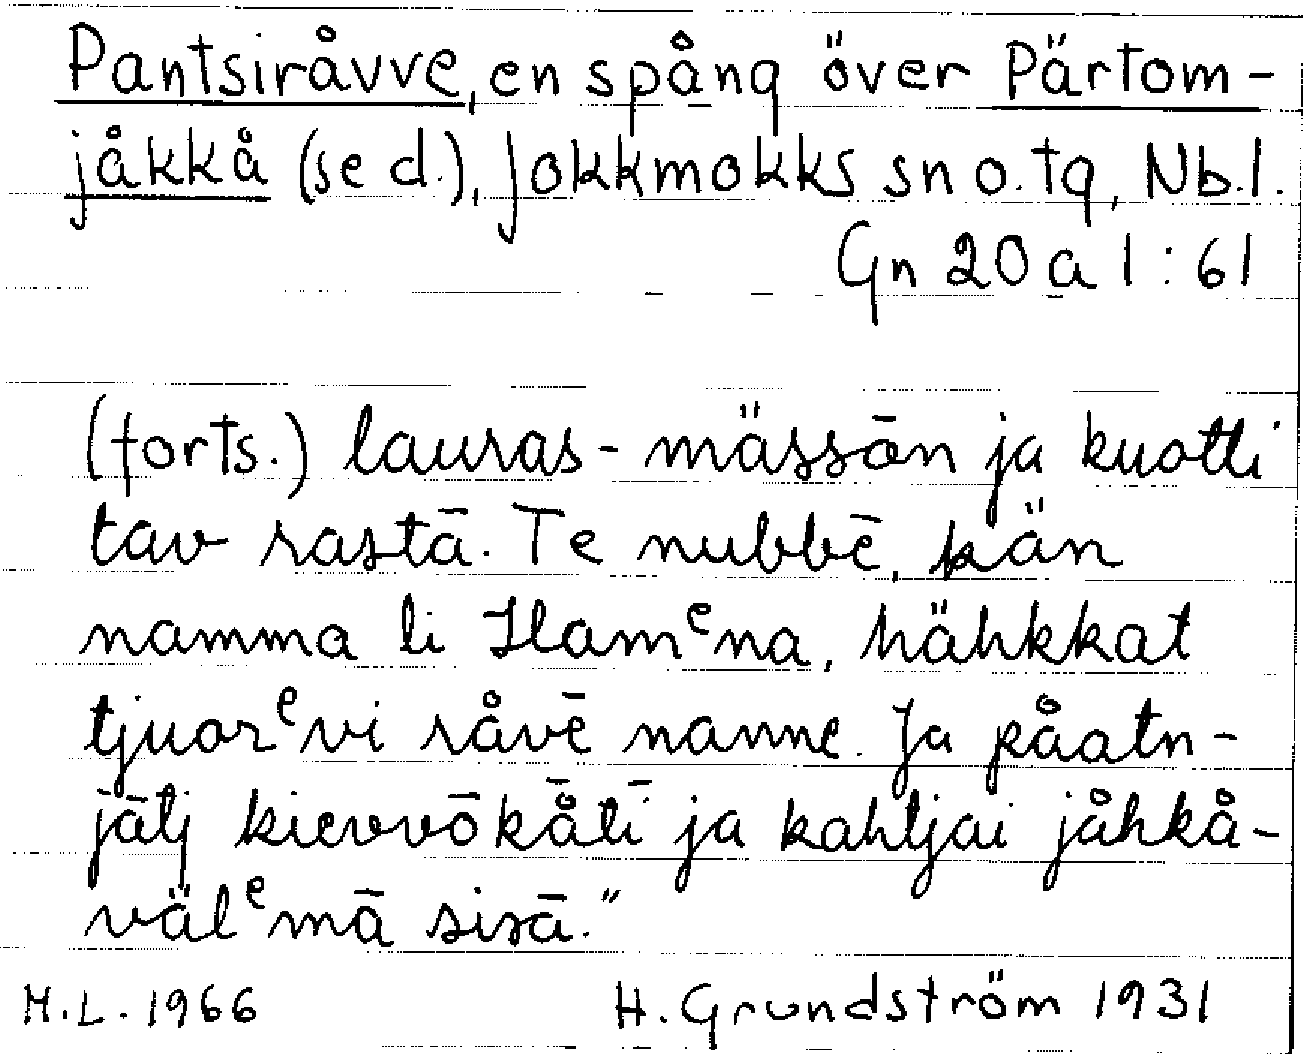 Pantsiråvve, en spång över Pärtom-
jåkkå (se d.), Jokkmokks sn o. tg, Nb. l.
Gn 20 a 1:61
(forts.) lauras-mässān ja kuotti
tav rastā. Te nubbē, kän
namma li Ilamᵉna, hähkkat
tjuorᵉvi råvē nanne. Ja påatn-
jātj kievvōkå̄tī ja kahtjai jåhkå-
välᵉmā sisā."
H.L. 1966 H. Grundström 1931